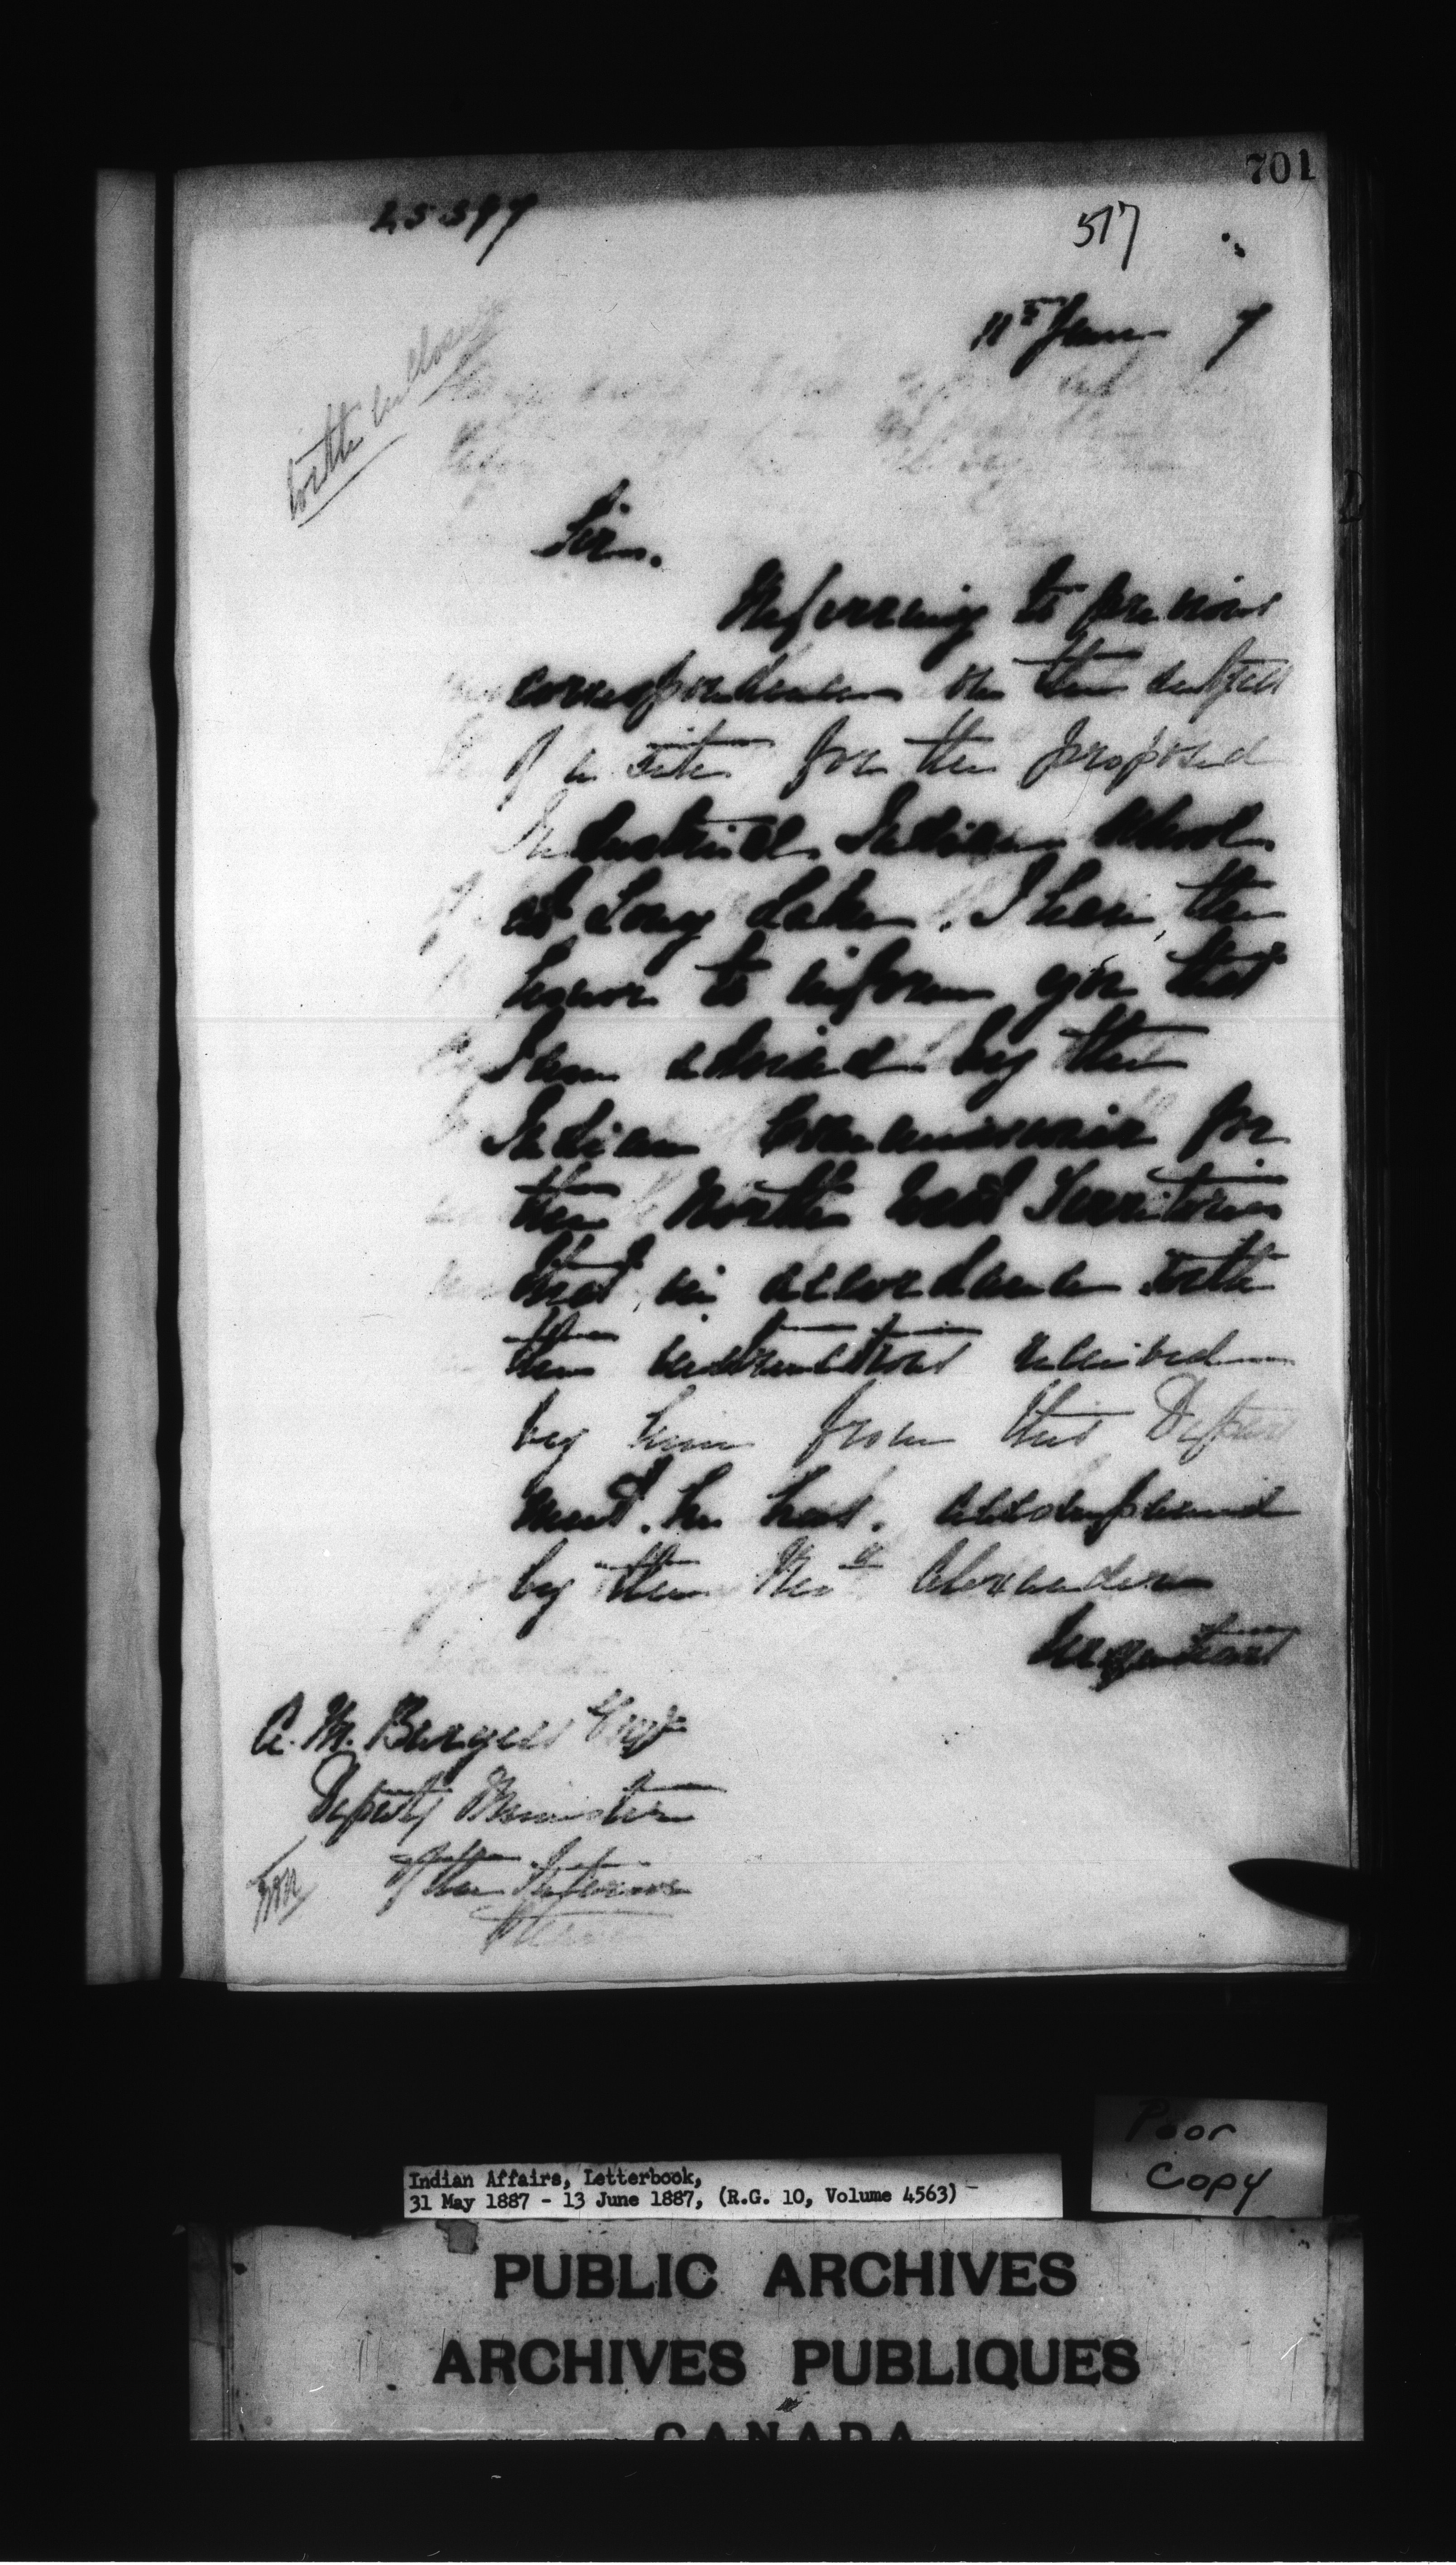 701
25397
517
11th June 7
Sir,
Referring to previous
correspondence on the subject
of a site for the proposed
Industrial Indian School
at Long Lake, I have the
honor to inform you that
I am advised by the
Indian Commissioner for
the North West Territories
that in accordance with
the instructions received
by him from this Depart
ment, he has, accompanied
by the Revd Alexander
A. M. Burgess Esqr
Deputy Minister
of the Interior
Poor
Copy
Indian Affairs, Letterbook,
31 May 1887 - 13 June 1887, (R.G. 10, Volume 4563)
PUBLIC ARCHIVES
ARCHIVES PUBLIQUES
CANADA